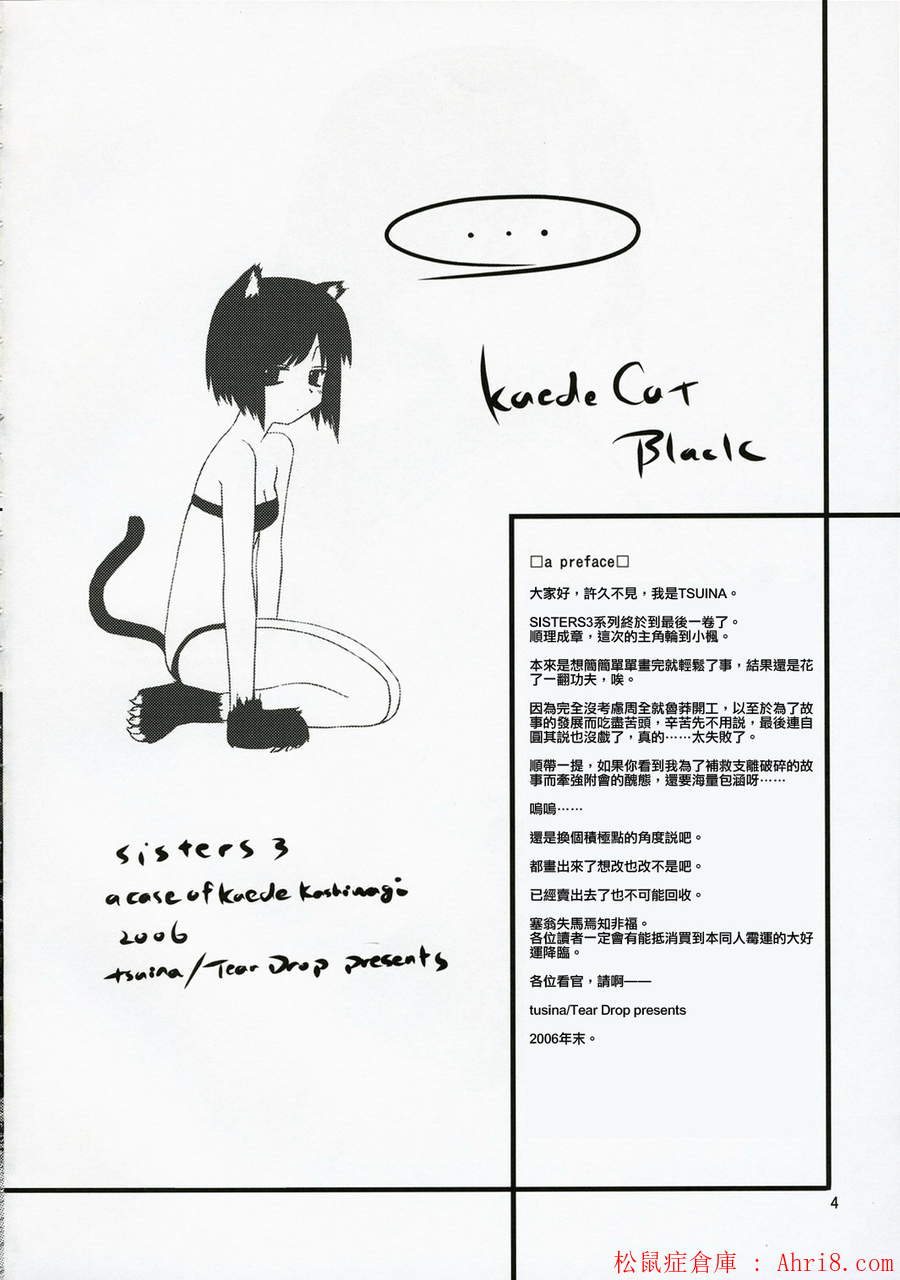 ...
kaede Cat
Black
□a preface□
大家好，許久不見，我是TSUINA。
SISTERS3系列終於到最後一卷了。
順理成章，這次的主角輪到小楓。
本來是想簡簡單單畫完就輕鬆了事，結果還是花
了一翻功夫，唉。
因為完全沒考慮周全就魯莽開工，以至於為了故
事的發展而吃盡苦頭，辛苦先不用說，最後連自
圓其說也沒戲了，真的……太失敗了。
順帶一提，如果你看到我為了補救支離破碎的故
事而牽強附會的醜態，還要海量包涵呀……
嗚嗚……
還是換個積極點的角度說吧。
都畫出來了想改也改不是吧。
已經賣出去了也不可能回收。
塞翁失馬焉知非福。
各位讀者一定會有能抵消買到本同人霉運的大好
運降臨。
各位看官，請啊——
tusina/Tear Drop presents
2006年末。
sisters 3
a case of kaede kashiwagi
2006
tsuina/Tear Drop presents
4
松鼠症倉庫 : Ahri8.com